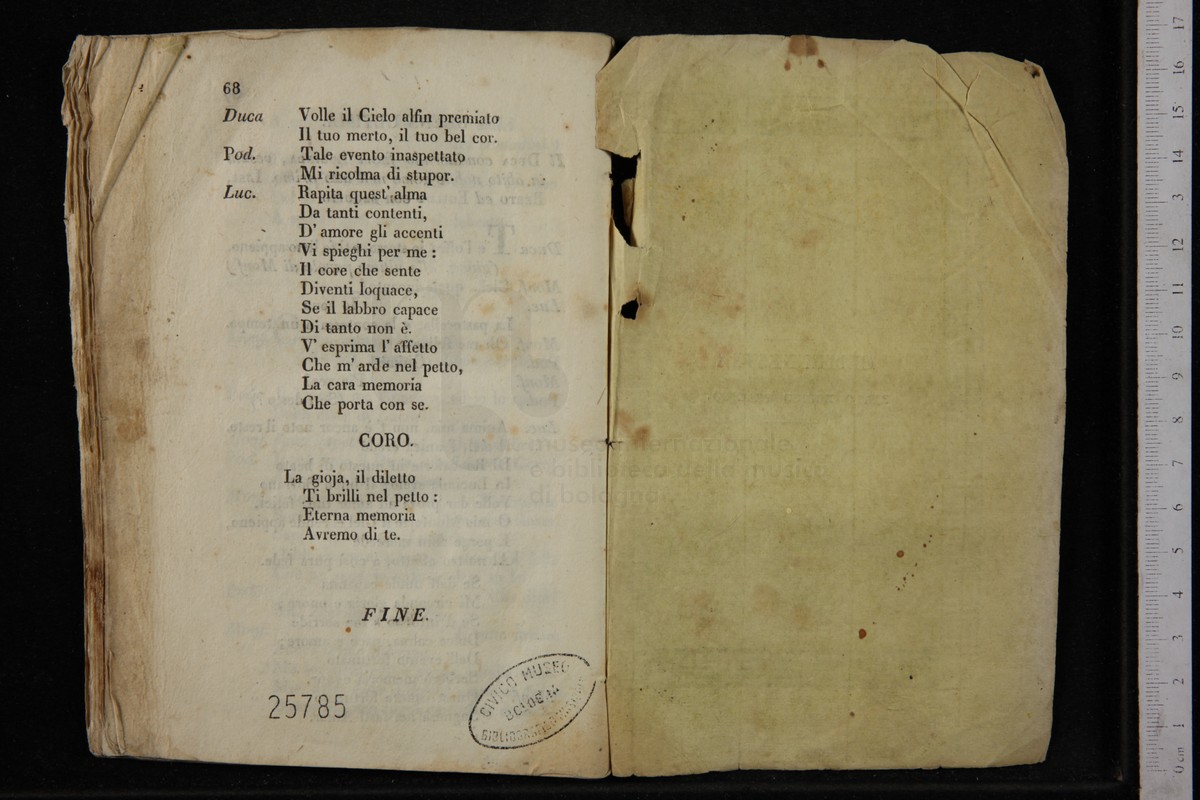 68
Duca Volle il Cielo alfin premiato
Il tuo merto, il tuo bel cor.
Pod. Tale evento inaspettato
Mi ricolma di stupor.
Luc. Rapita quest' alma
Da tanti contenti,
D' amore gli accenti
Vi spieghi per me :
Il core che sente
Diventi loquace,
Se il labbro capace
Di tanto non è.
V' esprima l' affetto
Che m' arde nel petto,
La cara memoria
Che porta con se.
CORO.
La gioja, il diletto
Ti brilli nel petto :
Eterna memoria
Avremo di te.
FINE.
25785
CIVICO MUSEO
BOLOGNA
museo internazionale
e biblioteca della musica
di bologna
0 cm 1 2 3 4 5 6 7 8 9 10 11 12 13 14 15 16 17